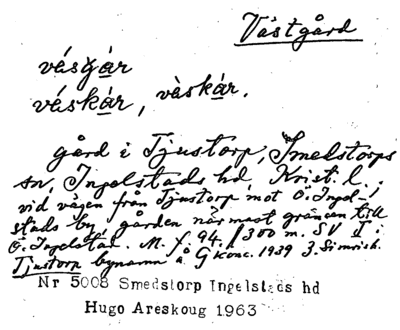 Västgård
vésgár
véskár, vàskár.
gård i Tjustorp, Smedstorps
sn, Ingelstads hd, Krist. l.;
vid vägen från Tjustorp mot Ö. Ingel-
stads by, gården närmast gränsen till
Ö. Ingelstad. M. f. 94. 1300 m. SV I i
Tjustorp bynamn å Gkonc. 1939 3. Simrish.
Nr 5008 Smedstorp Ingelstads hd
Hugo Areskoug 1963